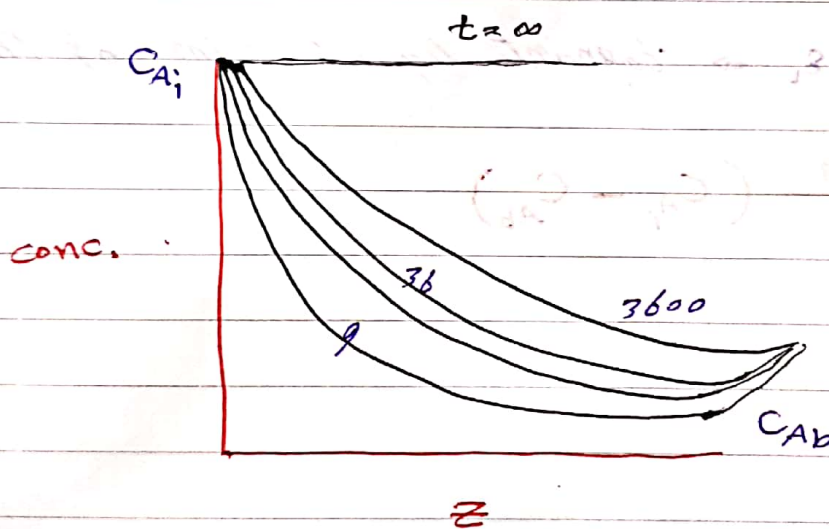 t = ∞
C_Ai
conc.
36
3600
9
C_Ab
z